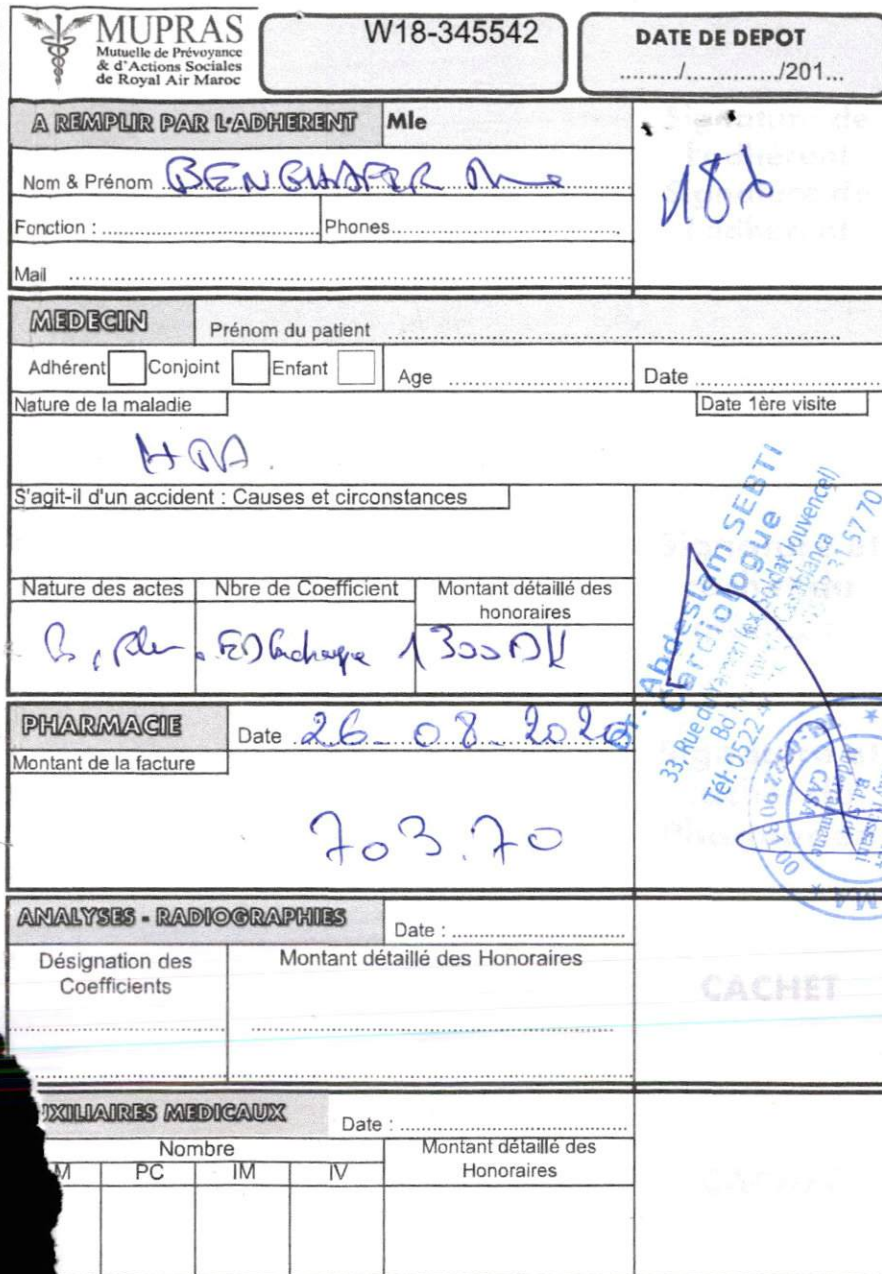 MUPRAS
Mutuelle de Prévoyance
& d'Actions Sociales
de Royal Air Maroc
W18-345542
DATE DE DEPOT
........./............../201...
A REMPLIR PAR L'ADHERENT Mle
Nom & Prénom
Fonction : Phones
Mail
MEDECIN Prénom du patient
Adhérent Conjoint Enfant Age Date
Nature de la maladie Date 1ère visite
HTA.
S'agit-il d'un accident : Causes et circonstances
Nature des actes Nbre de Coefficient Montant détaillé des
honoraires
1300 DH
Abdeslam SEBTI
Cardiologue
33, Rue
Tél: 0522
PHARMACIE Date 26-08-2020
Montant de la facture
703.70
ANALYSES - RADIOGRAPHIES Date :
Désignation des
Coefficients
Montant détaillé des Honoraires
CACHET
AUXILIAIRES MEDICAUX Date :
Nombre Montant détaillé des
Honoraires
M PC IM IV